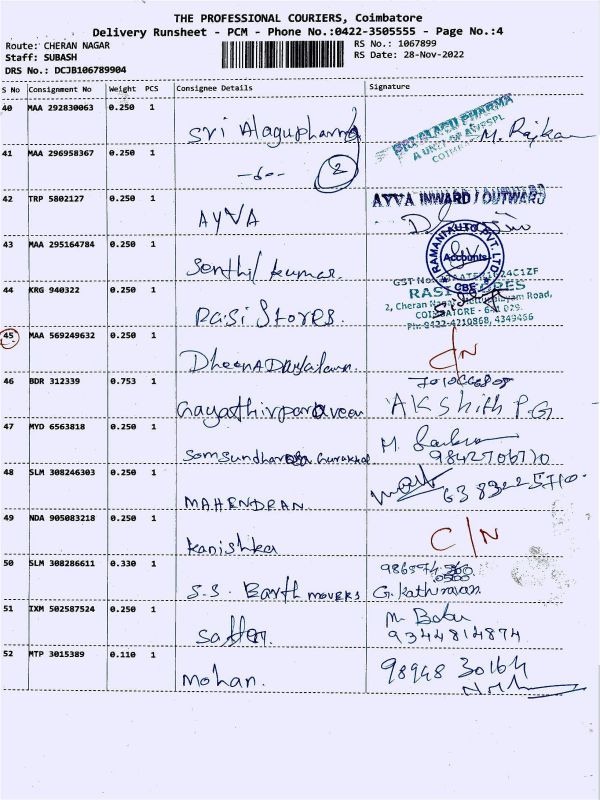 THE PROFESSIONAL COURIERS, Coimbatore
Delivery Runsheet - PCM - Phone No.:0422-3505555 - Page No.:4
Route: CHERAN NAGAR
Staff: SUBASH
DRS No.: DCJB106789904
RS No.: 1067899
RS Date: 28-Nov-2022
S No Consignment No Weight PCS Consignee Details Signature
40 MAA 292830063 0.250 1 Sri Alagupharma M. Rajkan
SRI ALAGU PHARMA
A UNIT OF
41 MAA 296958367 0.250 1 -do- 2
42 TRP 5802127 0.250 1 AYVA
AYVA INWARD / OUTWARD
43 MAA 295164784 0.250 1 Senthil kumar.
RAMANI AUTO PVT. LTD
Accounts
CBE
44 KRG 940322 0.250 1 Rasi Stores.
RASI STORES
2, Cheran Nagar, Road,
COIMBATORE - 641 029.
Ph: 0422-4210868, 4349466
45 MAA 569249632 0.250 1 DheenADayalan. C/N
46 BDR 312339 0.753 1 Gayathiriparaveen AKShith P.G
47 MYD 6563818 0.250 1 Somsundharam Gurukhal M.
9842706770
48 SLM 308246303 0.250 1 MAHENDRAN
49 NDA 905083218 0.250 1 Kanishka C/N
50 SLM 308286611 0.330 1 S.S. Earth movers G. Kathirvan
51 IXM 502587524 0.250 1 M. Babu
9344814874
52 MTP 3015389 0.110 1 Mohan. 98948 30164